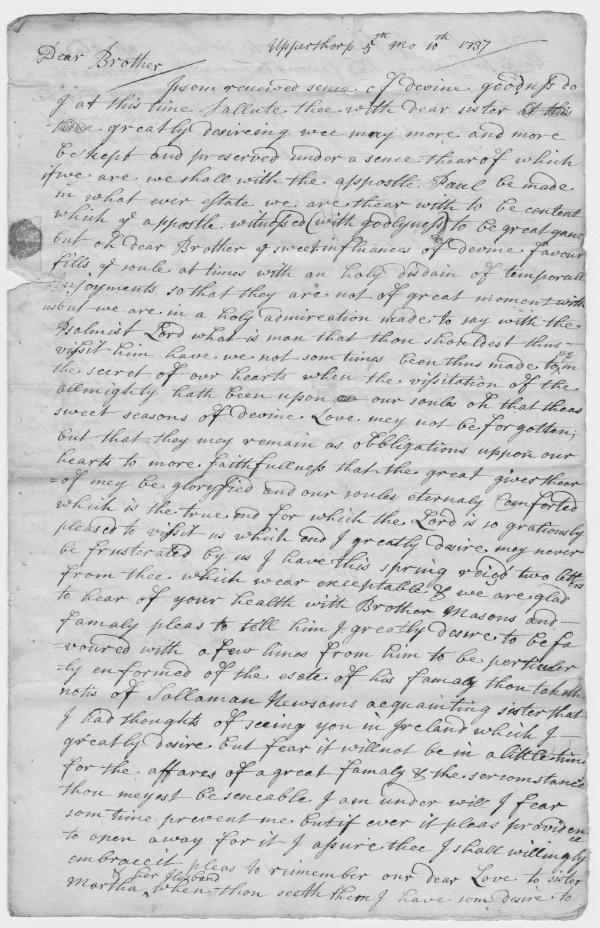 Upperthorp 5th mo 10th 1737
Dear Brother
In som renewed sence of devine goodness do
I at this time sallute thee with dear sister at this
time greatly desireing wee may more and more
be kept and preserved under a sence thear of which
if we are we shall with the appostle Paul be made
in what ever estate we are thear with to be content
which ye appostle witnessed (with godlyness) to be great gane
but oh dear Brother ye sweet influances of devine favour
fills ye soule at times with an holy disdain of temporall
injoyments so that they are not of great moment with
us but we are in a holy admireation made to say with the
Psalmist Lord what is man that thou shouldest thus
vissit him have we not som times been thus made to say in
the secret of our hearts when the vissitation of the
allmighty hath been upon our soules oh that theas
sweet seasons of devine Love mey not be forgotten;
but that they mey remain as obbligations uppon our
hearts to more faithfullness that the great giver thear
=of mey be gloryfied and our soules eternaly Comforted
which is the true end for which the Lord is so gratiously
pleased to vissit us which end I greatly desire mey never
be frusterated by us I have this spring recied two letters
from thee which wear exceptable & we are glad
to hear of your health with Brother Masons and
famaly pleas to tell him I greatly desire to be fa
=voured with a few lines from him to be perticuler
=ly enformed of the esate of his famaly thou taketh
notis of Sallaman Newsams acquainting sister that
I had thoughts of seeing you in Ireland which I
greatly desire but fear it will not be in a little time
for the affares of a great famaly & the sercomstance
thou meyest be senceable I am under will I fear
som time prevent me but if ever it pleas providence
to open away for it I asure thee I shall willingly
embrace it pleas to rimember our dear Love to sister
Martha & her Husband when thou seeth them I have som desire to